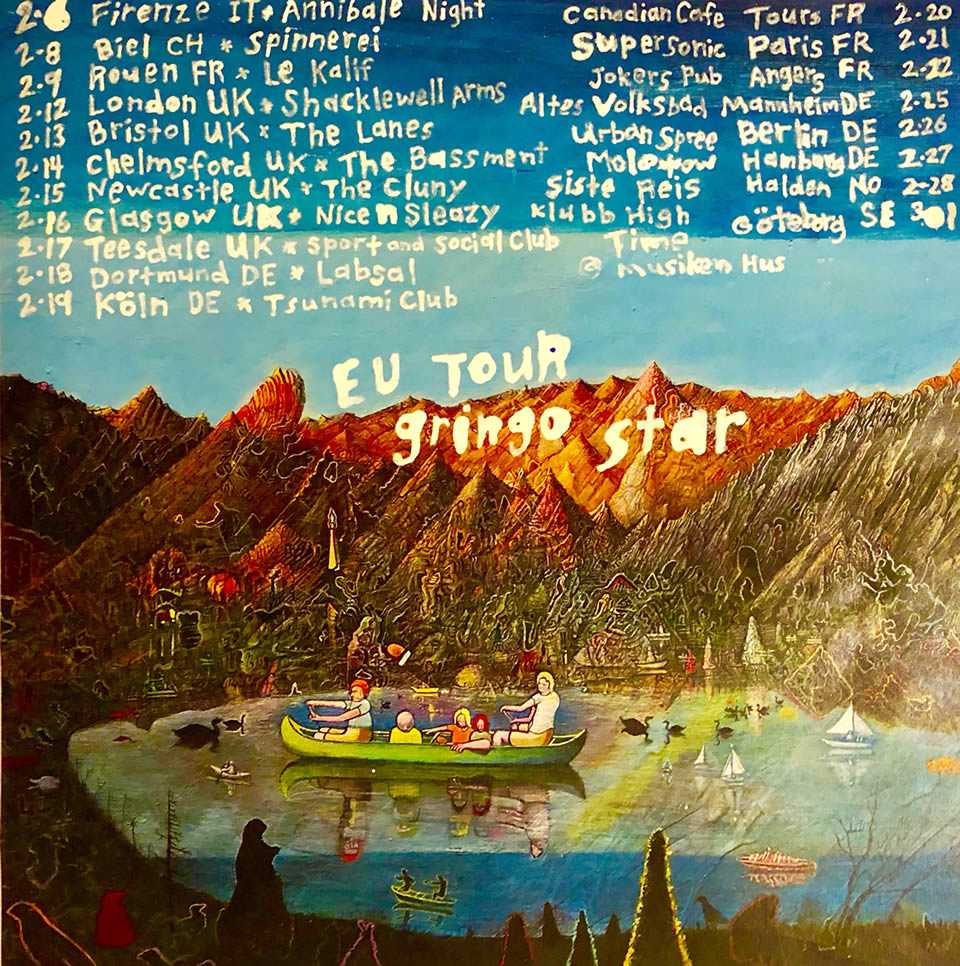 2·6 Firenze IT * Annibale Night
2·8 Biel CH * Spinnerei
2·9 Rouen FR * Le Kalif
2·12 London UK * Shacklewell Arms
2·13 Bristol UK * The Lanes
2·14 Chelmsford UK * The Bassment
2·15 Newcastle UK * The Cluny
2·16 Glasgow UK * Nice n Sleazy
2·17 Teesdale UK * Sport and Social Club
2·18 Dortmund DE * Labsal
2·19 Köln DE * Tsunami Club
Canadian Cafe Tours FR 2·20
Supersonic Paris FR 2·21
Jokers Pub Angers FR 2·22
Altes Volksbad Mannheim DE 2·25
Urban Spree Berlin DE 2·26
Molotow Hamburg DE 2·27
Siste Reis Halden No 2·28
Klubb High Göteborg SE 3·01
Time
@ musiken Hus
EU TOUR
gringo star